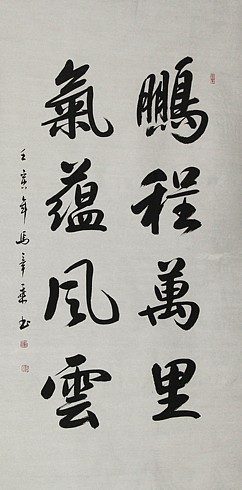 鵬程萬里
氣蘊風雲
壬寅年馬章乘书